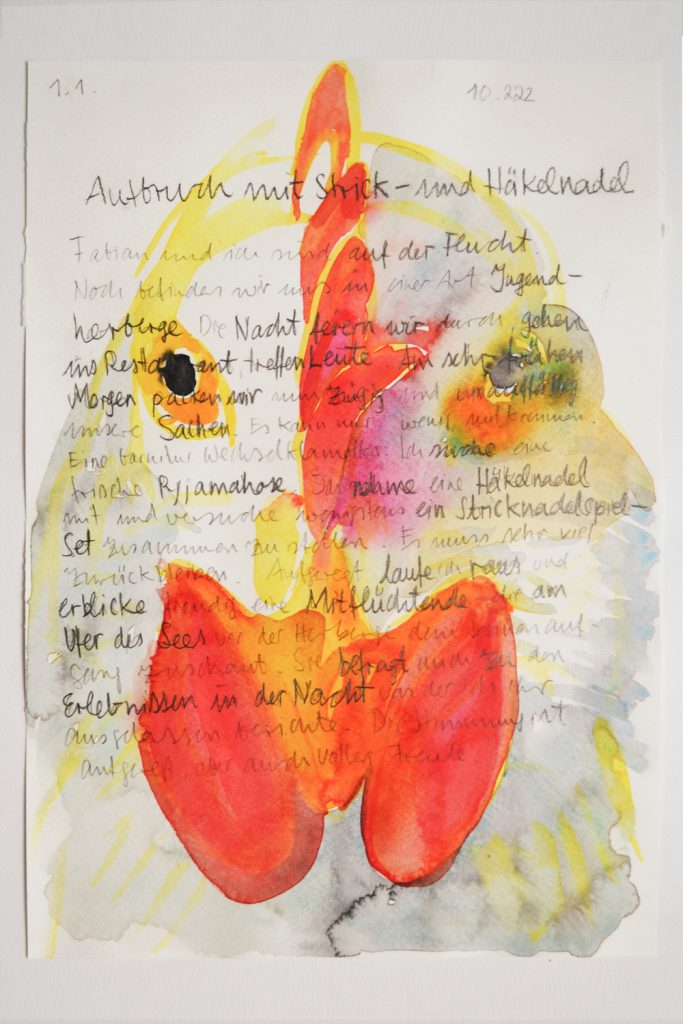 1.1. 10.222
Aufbruch mit Strick- und Häkelnadel
Fabian und ich sind auf der Flucht.
Noch befinden wir uns in einer Art Jugend-
herberge. Die Nacht feiern wir durch, gehen
ins Restaurant, treffen Leute. Am sehr frühen
Morgen packen wir nun zügig und unauffällig
unsere Sachen. Es kann nur wenig mitkommen.
Eine Wechselklamotte. Ich suche eine
frische Pyjamahose. Ich nehme eine Häkelnadel
mit und versuche wenigstens ein Stricknadelspiel-
Set zusammen zu stellen. Es muss sehr viel
zurückbleiben. Aufgeregt laufe ich raus und
erblicke freudig eine Mitflüchtende die am
Ufer des Sees vor der Herberge dem Sonnenauf-
gang zuschaut. Sie befragt mich zu den
Erlebnissen in der Nacht von der ich ihr
ausgelassen berichte. Die Stimmung ist
aufgeregt, aber auch voller Freude.